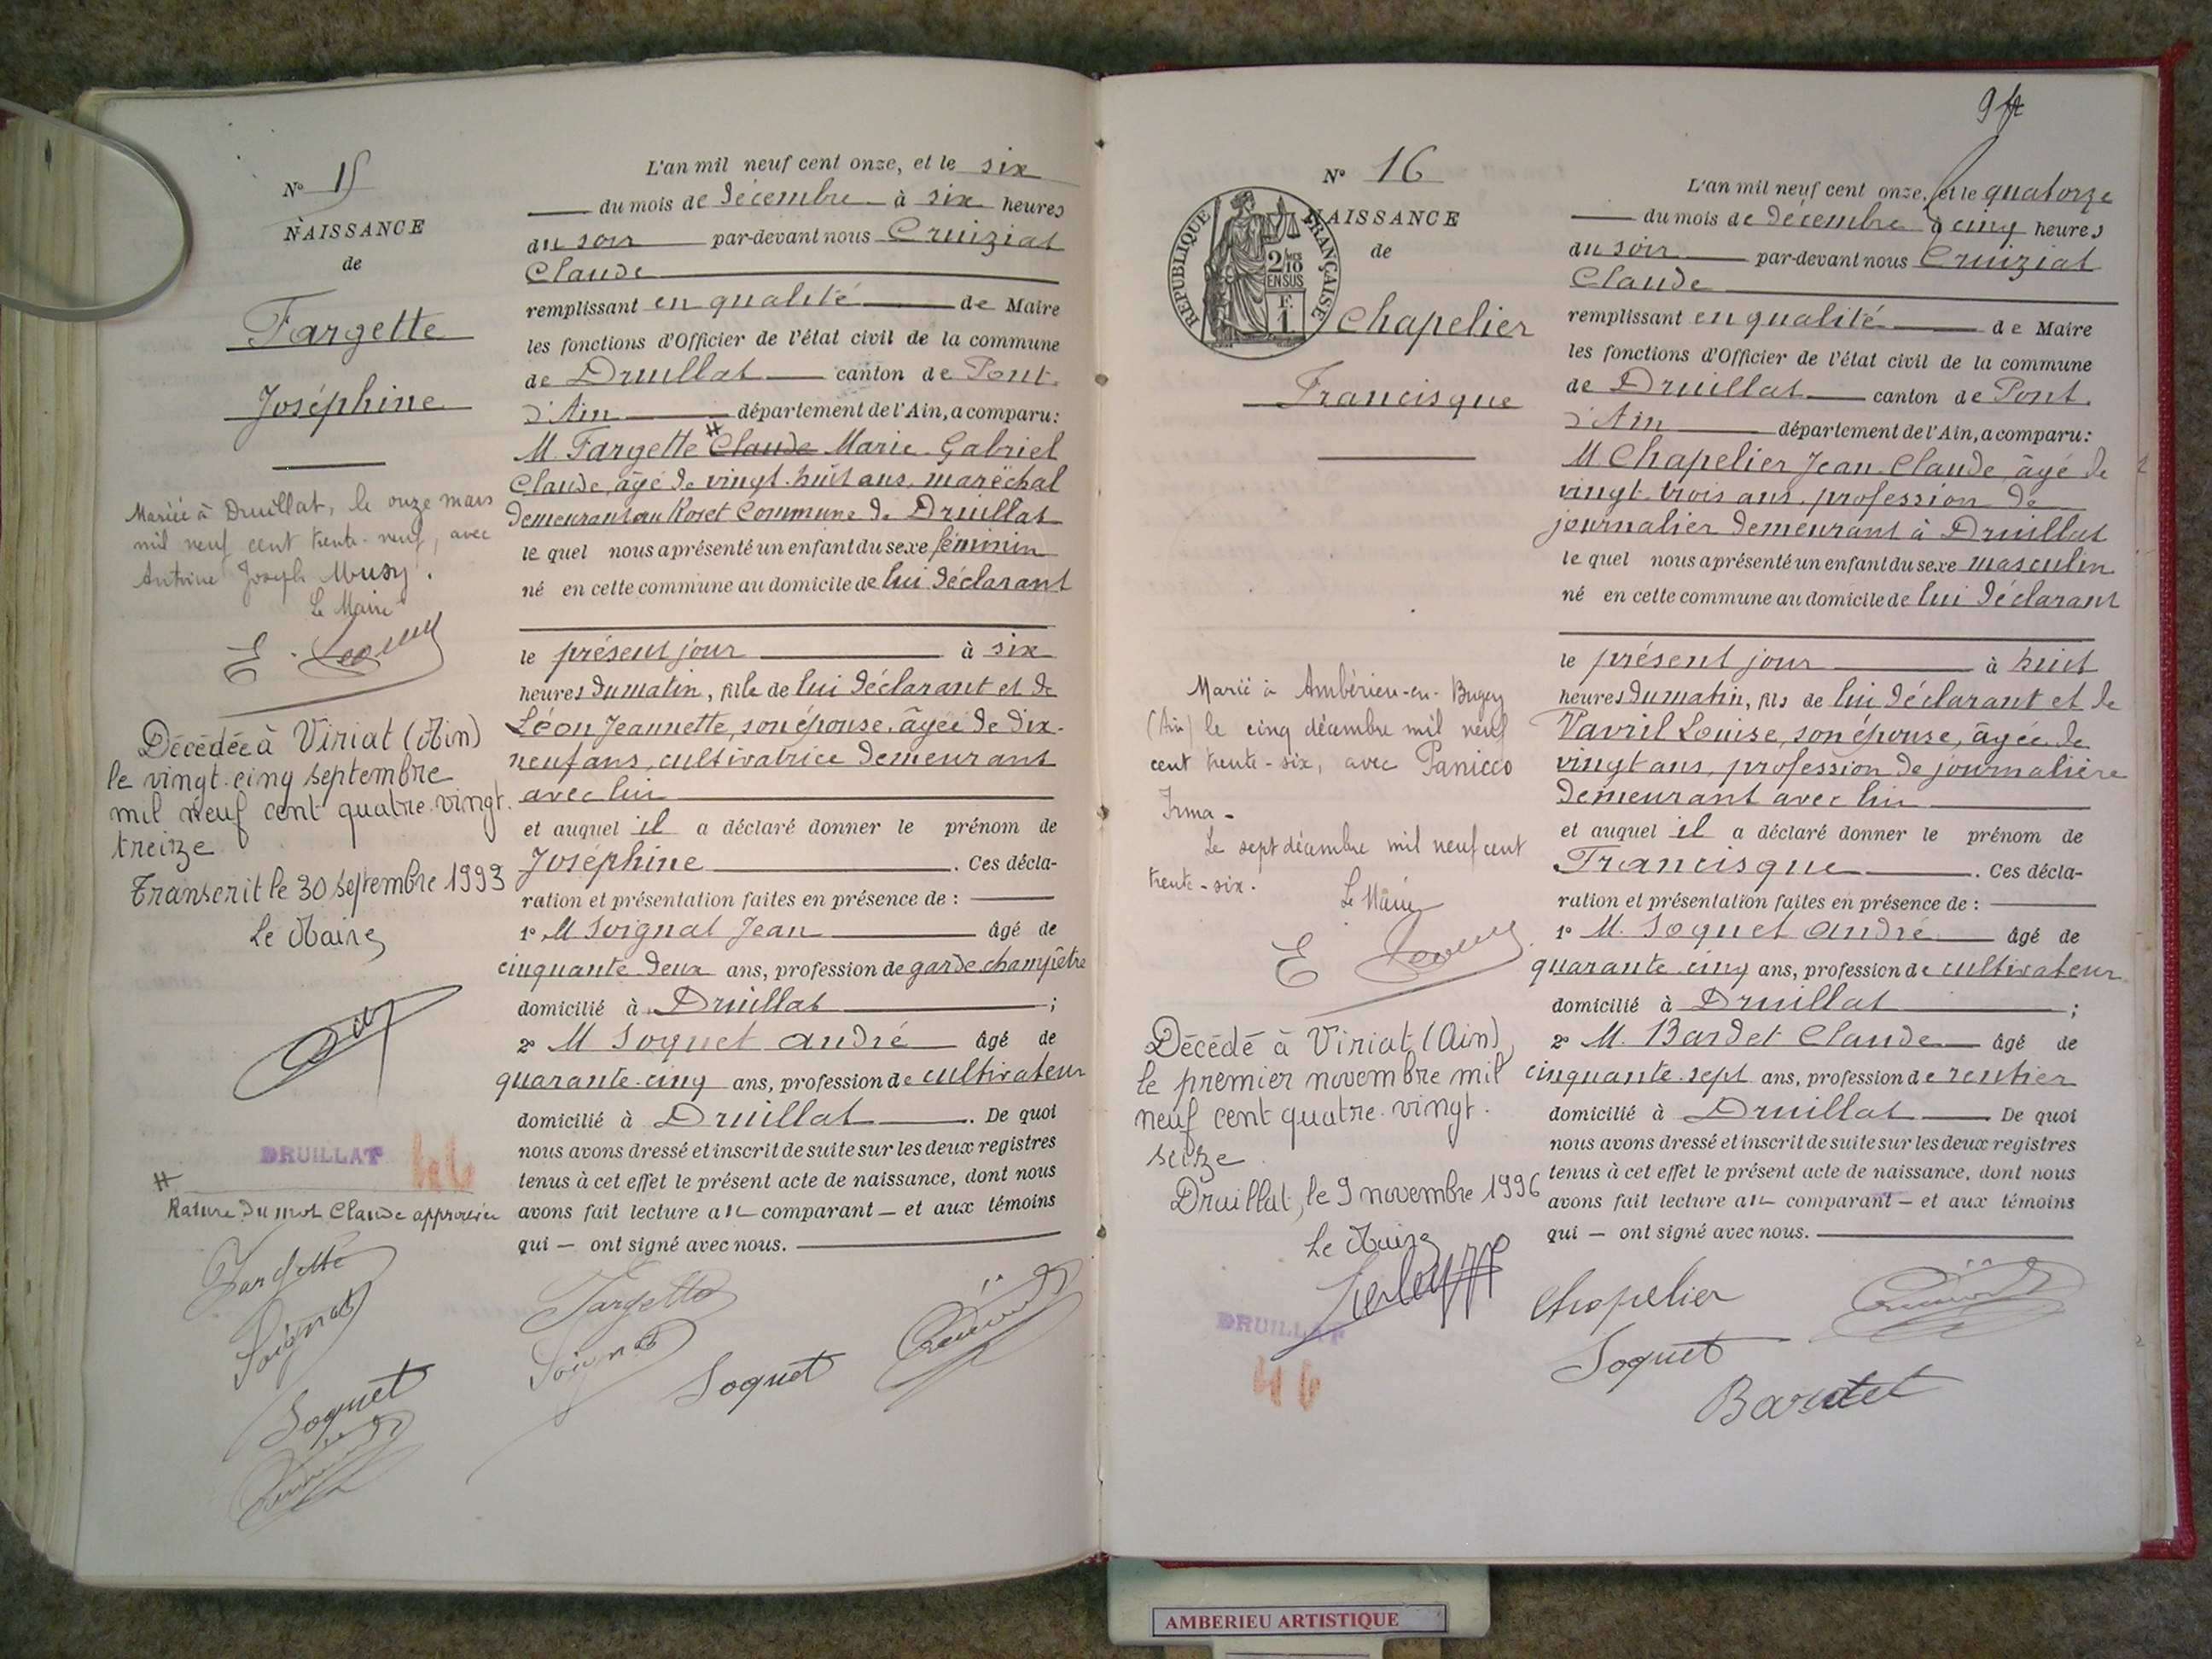 Nº 15
NAISSANCE
de
Fargette
Joséphine
Mariée à Druillat, le onze mars
mil neuf cent trente-neuf, avec
Antoine Joseph Musy.
Le Maire
Décédée à Viriat (Ain)
le vingt-cinq septembre
mil neuf cent quatre-vingt-
treize
Transcrit le 30 septembre 1993
Le Maire
DRUILLAT 46
Rature du mot Claude approuvée
Fargette
Soignat
Soquet
L'an mil neuf cent onze, et le six
du mois de décembre à six heures
du soir par-devant nous Cruiziat
Claude
remplissant en qualité de Maire
les fonctions d'Officier de l'état civil de la commune
de Druillat canton de Pont-
d'Ain département de l'Ain, a comparu:
M Fargette Claude Marie Gabriel
Claude, âgé de vingt-huit ans, maréchal
demeurant au Roset Commune de Druillat
le quel nous a présenté un enfant du sexe féminin
né en cette commune au domicile de lui déclarant
le présent jour à six
heures du matin, fille de lui déclarant et de
Léon Jeannette, son épouse, âgée de dix-
neuf ans, cultivatrice demeurant
avec lui
et auquel il a déclaré donner le prénom de
Joséphine. Ces décla-
ration et présentation faites en présence de :
1º M Soignat Jean âgé de
cinquante deux ans, profession de garde champêtre
domicilié à Druillat ;
2º M Soquet André âgé de
quarante-cinq ans, profession de cultivateur
domicilié à Druillat. De quoi
nous avons dressé et inscrit de suite sur les deux registres
tenus à cet effet le présent acte de naissance, dont nous
avons fait lecture au comparant — et aux témoins
qui — ont signé avec nous.
Fargette
Soignat
Soquet
Nº 16
NAISSANCE
de
RÉPUBLIQUE FRANÇAISE
2/10 EN SUS
F. 1
Chapelier
Francisque
Marié à Ambérieu-en-Bugey
(Ain) le cinq décembre mil neuf
cent trente-six, avec Panicco
Irma -
Le sept décembre mil neuf cent
trente-six.
Le Maire
Décédé à Viriat (Ain)
le premier novembre mil
neuf cent quatre-vingt-
seize
Druillat, le 9 novembre 1996
Le Maire
DRUILLAT
46
L'an mil neuf cent onze, et le quatorze
du mois de décembre à cinq heures
du soir par-devant nous Cruiziat
Claude
remplissant en qualité de Maire
les fonctions d'Officier de l'état civil de la commune
de Druillat canton de Pont-
d'Ain département de l'Ain, a comparu:
M Chapelier Jean-Claude, âgé de
vingt-trois ans, profession de
journalier demeurant à Druillat
le quel nous a présenté un enfant du sexe masculin
né en cette commune au domicile de lui déclarant
le présent jour à huit
heures du matin, fils de lui déclarant et de
Vavril Louise, son épouse, âgée de
vingt ans, profession de journalière
demeurant avec lui
et auquel il a déclaré donner le prénom de
Francisque. Ces décla-
ration et présentation faites en présence de :
1º M. Soquet André âgé de
quarante cinq ans, profession de cultivateur
domicilié à Druillat ;
2º M. Bardet Claude âgé de
cinquante-sept ans, profession de rentier
domicilié à Druillat De quoi
nous avons dressé et inscrit de suite sur les deux registres
tenus à cet effet le présent acte de naissance, dont nous
avons fait lecture au comparant — et aux témoins
qui — ont signé avec nous.
Chapelier
Soquet
Bardet
AMBERIEU ARTISTIQUE